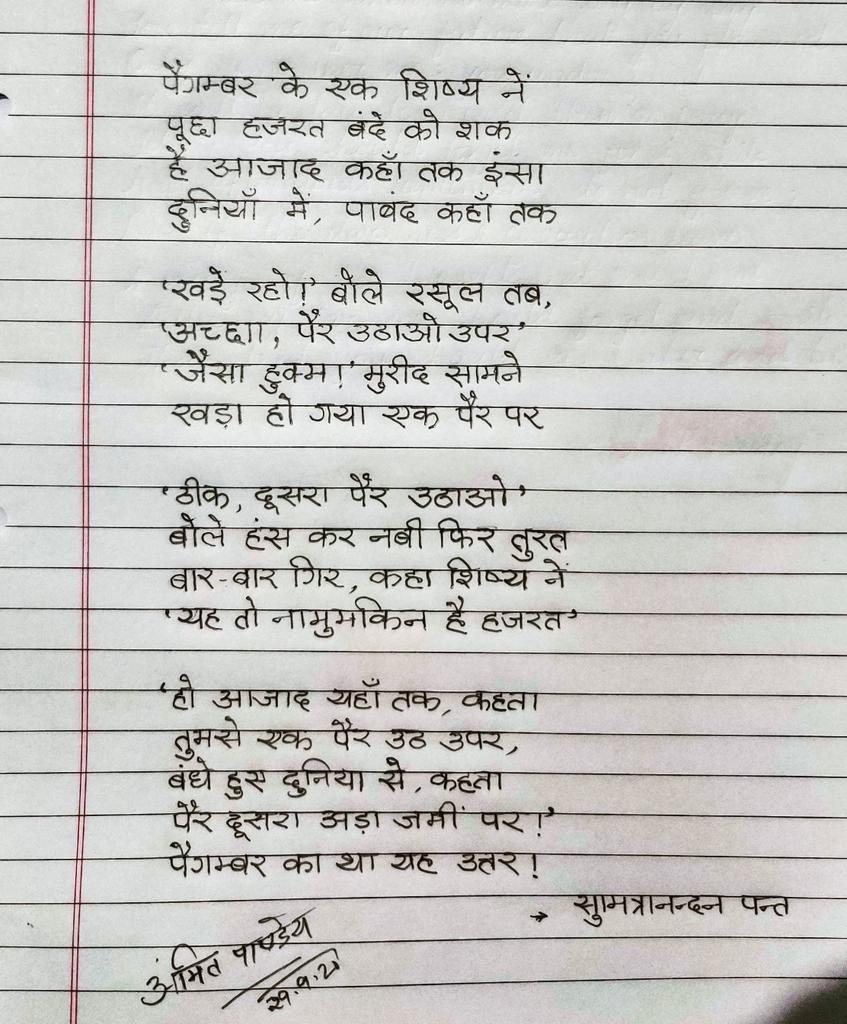 पैगम्बर के एक शिष्य नें
पूछा हजरत बंदे को शक
है आजाद कहाँ तक इंसा
दुनियाँ में, पाबंद कहाँ तक
'खड़े रहो!' बोले रसूल तब,
'अच्छा, पैर उठाओ उपर'
'जैसा हुक्म!' मुरीद सामने
खड़ा हो गया एक पैर पर
'ठीक, दूसरा पैर उठाओ'
बोले हंस कर नबी फिर तुरत
बार-बार गिर, कहा शिष्य नें
'यह तो नामुमकिन है हजरत'
'हो आजाद यहाँ तक, कहता
तुमसे एक पैर उठ उपर,
बंधे हुए दुनिया से, कहता
पैर दूसरा अड़ा जमीं पर!'
पैगम्बर का था यह उतर!
→ सुमित्रानन्दन पन्त
अमित पाण्डेय
29.9.21